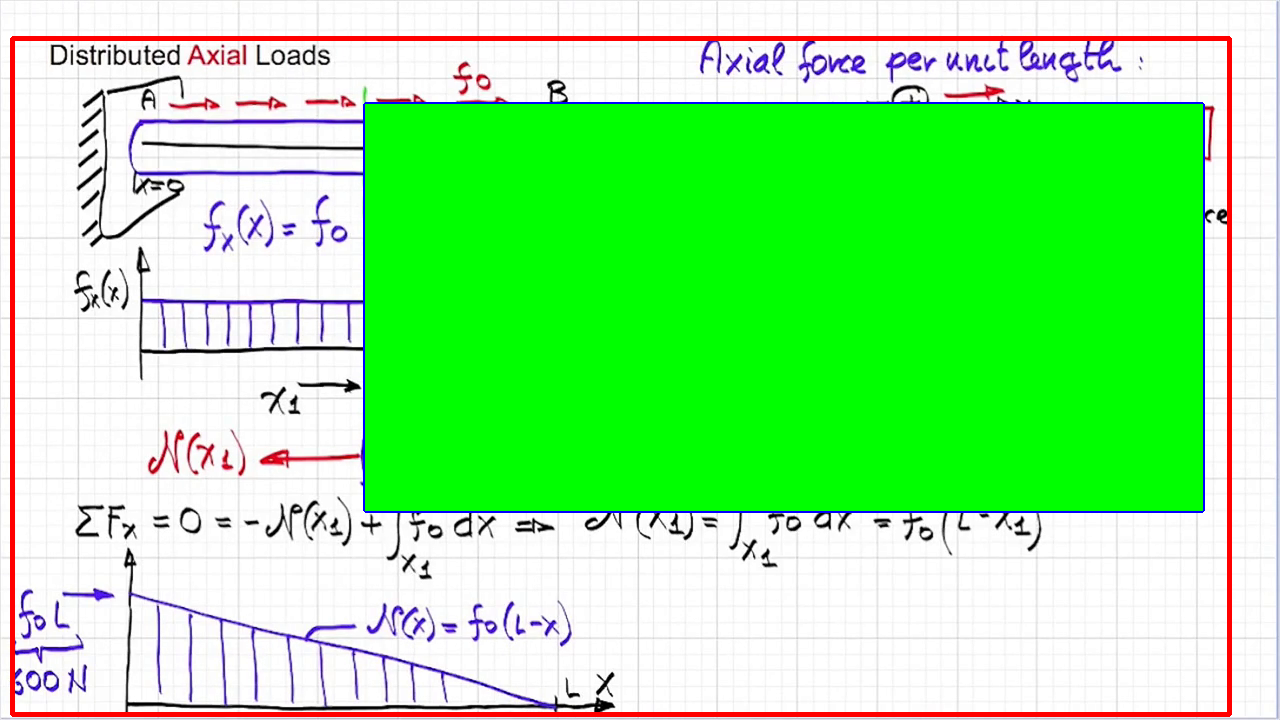 Distributed Axial Loads
Axial force per unit length :
A f0 B
x=0
fx(x) = f0
fx(x)
x1
N(x1)
ΣFx = 0 = -N(x1) + ∫x1 f0 dx ⇒ N(x1) = ∫x1 f0 dx = f0(L-x1)
f0L
N(x) = f0(L-x)
600 N
L X